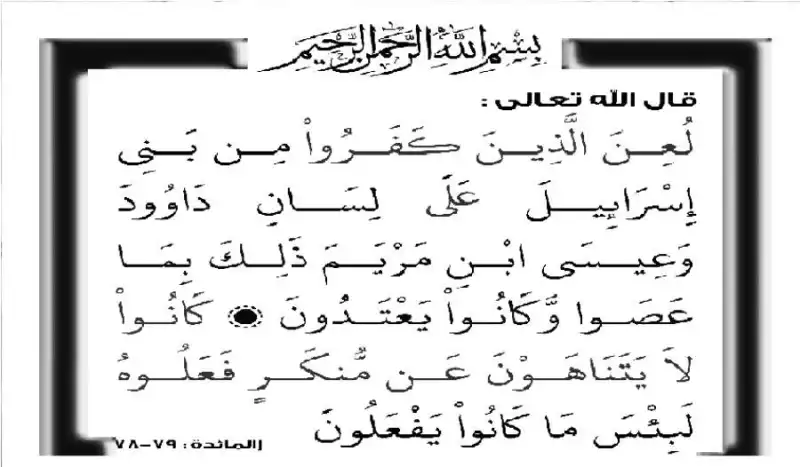 بِسْمِ اللَّهِ الرَّحْمَٰنِ الرَّحِيمِ
قال الله تعالى :
لُعِنَ الَّذِينَ كَفَرُواْ مِن بَنِي
إِسْرَائِيلَ عَلَى لِسَانِ دَاوُودَ
وَعِيسَى ابْنِ مَرْيَمَ ذَلِكَ بِمَا
عَصَوا وَّكَانُواْ يَعْتَدُونَ ۝ كَانُواْ
لاَ يَتَنَاهَوْنَ عَن مُّنكَرٍ فَعَلُوهُ
لَبِئْسَ مَا كَانُواْ يَفْعَلُونَ المائدة : ٧٩-٧٨